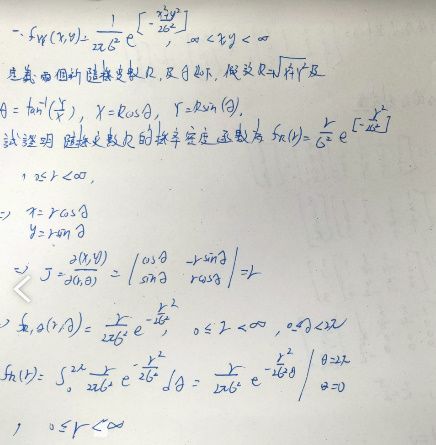 一. fxy(x,y)= 1/2πσ² e^[-(x²+y²)/2σ²], ∞<x,y<∞
定義兩個新隨機變數R, 及θ如下, 假設R=√(x²+y²)及
θ=tan⁻¹(Y/X), X=Rcosθ, Y=Rsin(θ).
試證明 隨機變數R的機率密度函數為 f_R(r)= r/σ² e^[-r²/2σ²]
, 0≤r<∞,
=> x=rcosθ
y=rsinθ
=> J= ∂(x,y)/∂(r,θ) = |cosθ -rsinθ; sinθ rcosθ| =r
=> f_R,θ(r,θ)= r/2πσ² e^-r²/2σ², 0≤r<∞, 0≤θ<2π
f_R(r)= ∫₀^2π r/2πσ² e^-r²/2σ² dθ = r/2πσ² e^-r²/2σ² θ |θ=2π θ=0
, 0≤r<∞